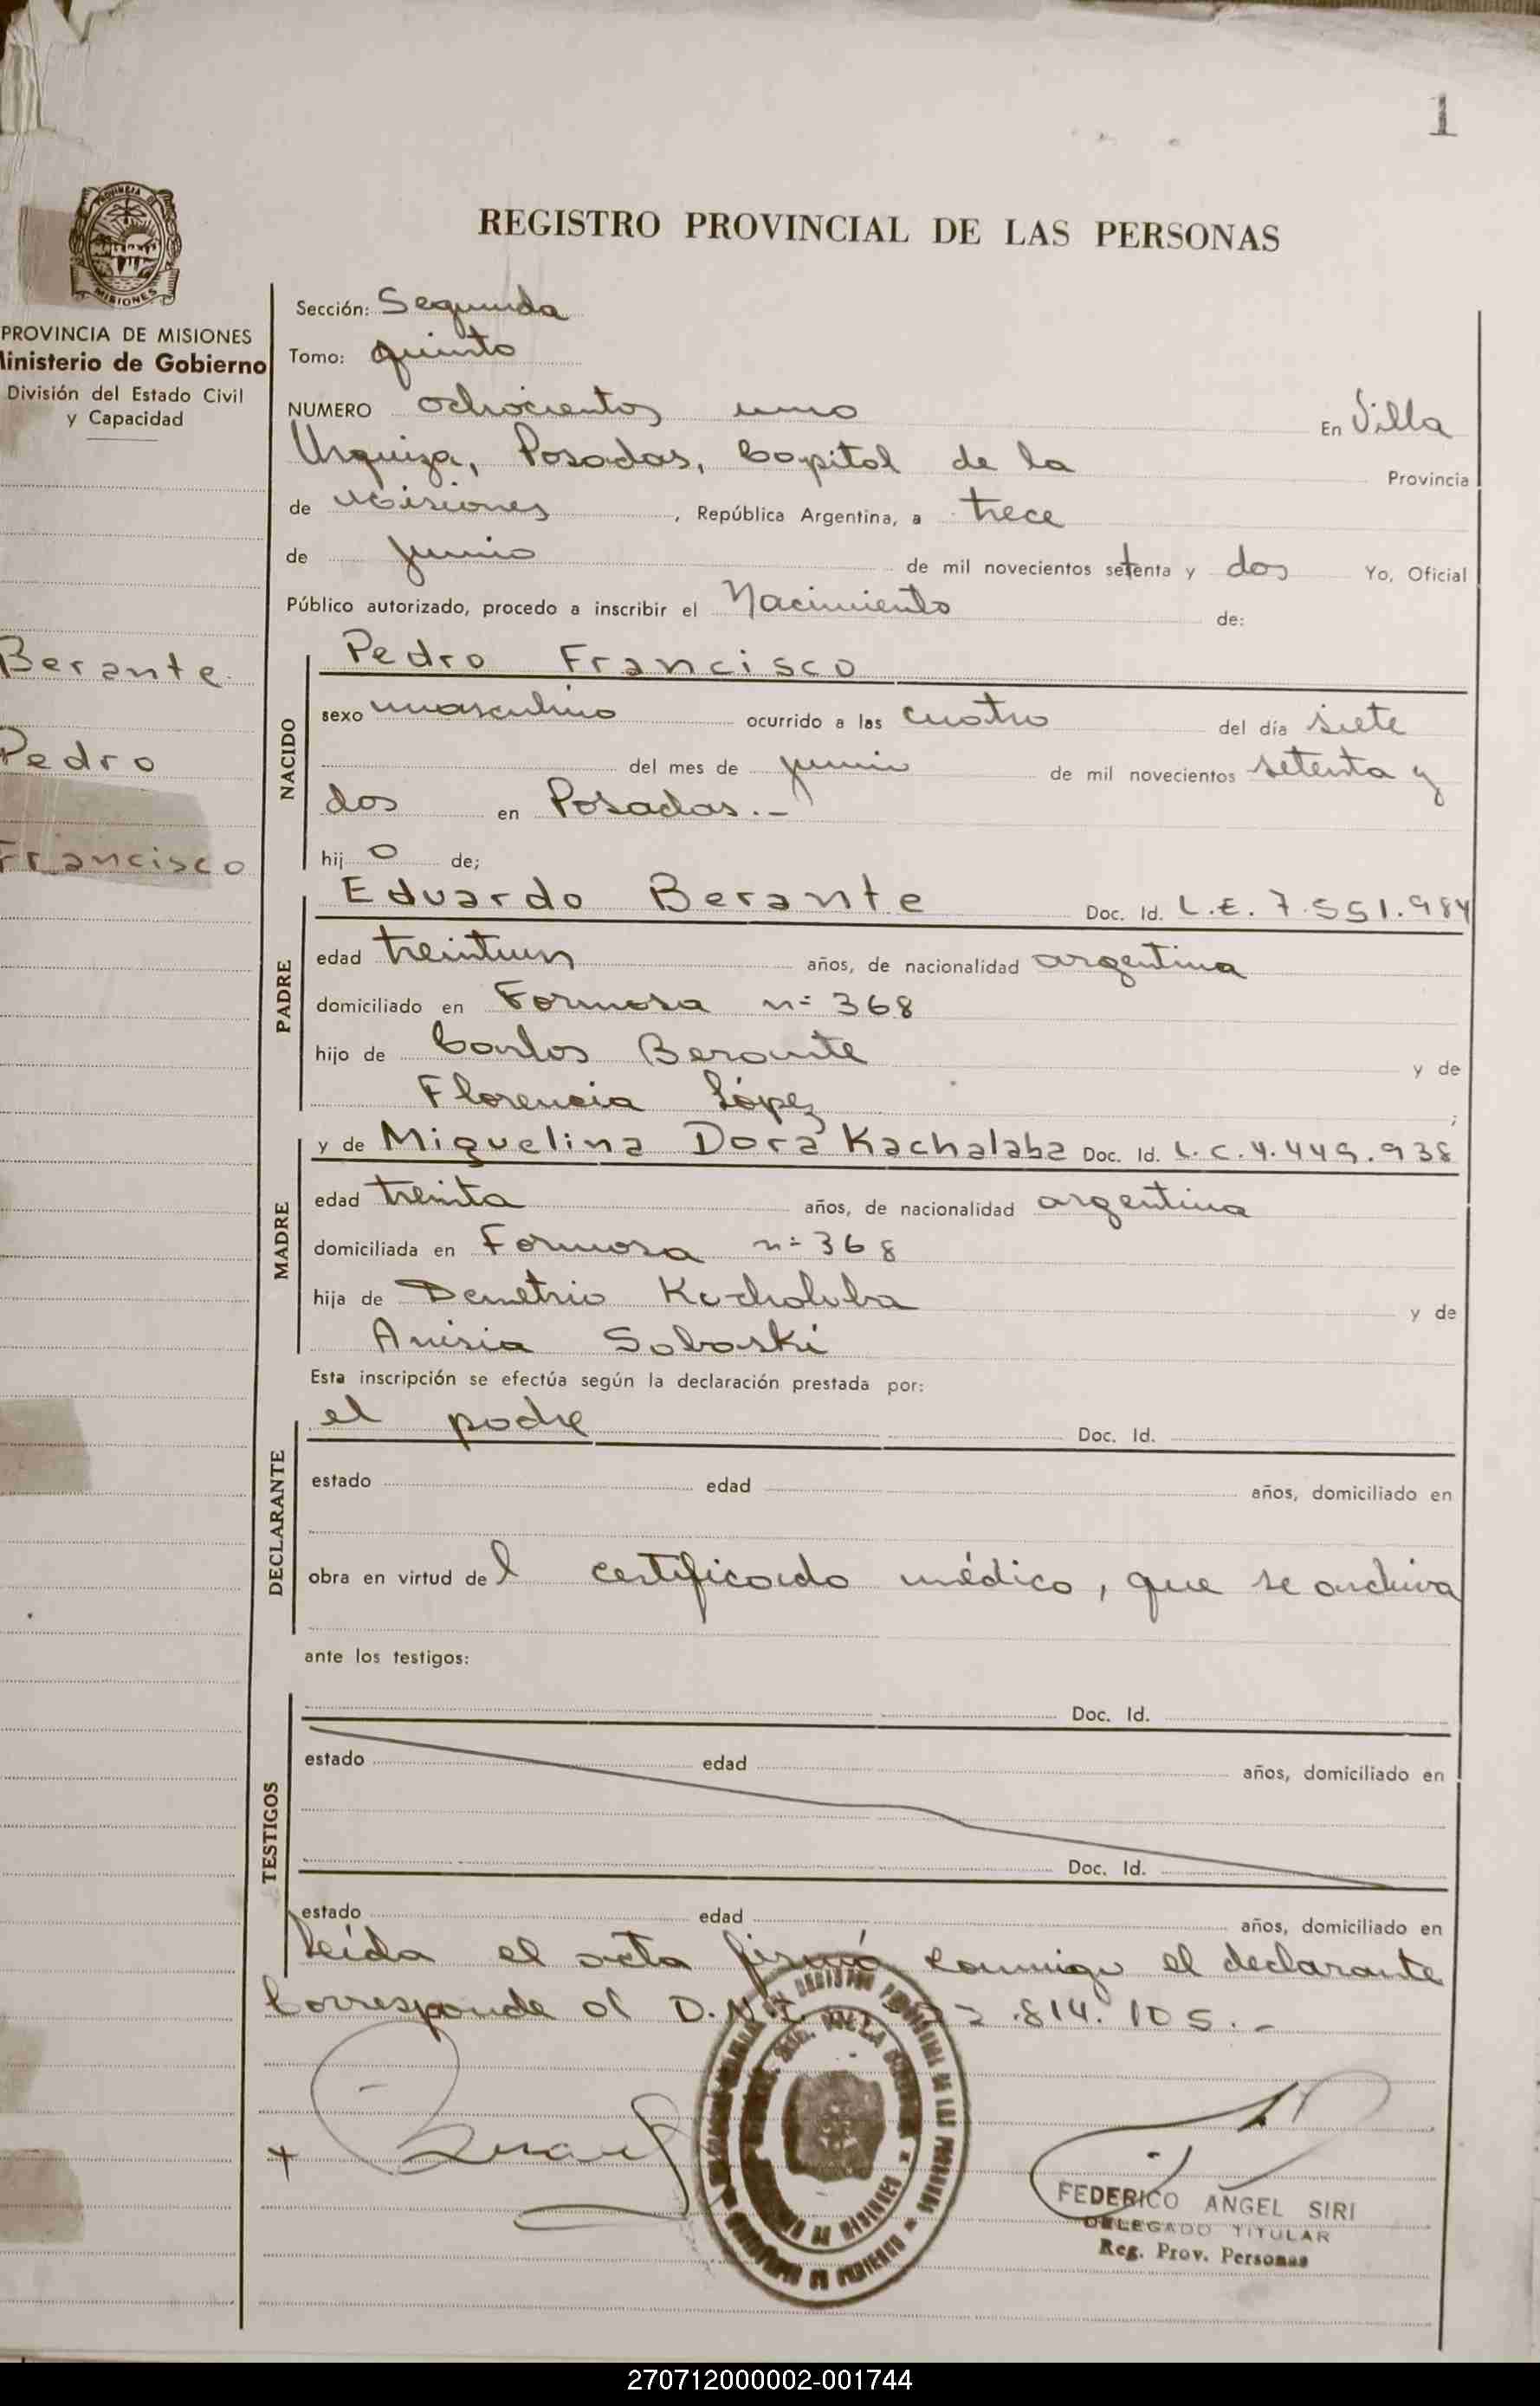 1
REGISTRO PROVINCIAL DE LAS PERSONAS
PROVINCIA DE MISIONES
Ministerio de Gobierno
División del Estado Civil
y Capacidad
Berante
Pedro
Francisco
Sección: Segunda
Tomo: quinto
NUMERO ochocientos uno En Villa
Urquiza, Posadas, Capital de la Provincia
de Misiones, República Argentina, a trece
de junio de mil novecientos setenta y dos Yo, Oficial
Público autorizado, procedo a inscribir el Nacimiento de:
NACIDO
Pedro Francisco
sexo masculino ocurrido a las cuatro del día siete
del mes de junio de mil novecientos setenta y
dos en Posadas.-
hij o de;
PADRE
Eduardo Berante Doc. Id. L.E. 7.551.984
edad treintiun años, de nacionalidad argentina
domiciliado en Formosa nº 368
hijo de Carlos Berante y de
Florencia López;
MADRE
y de Miguelina Dora Kachalaba Doc. Id. L.C. 4.449.938
edad treinta años, de nacionalidad argentina
domiciliada en Formosa nº 368
hija de Demetrio Kachalaba y de
Anisia Soboski
Esta inscripción se efectúa según la declaración prestada por:
DECLARANTE
el padre Doc. Id.
estado edad años, domiciliado en
obra en virtud del certificado médico, que se archiva
ante los testigos:
TESTIGOS
Doc. Id.
estado edad años, domiciliado en
Doc. Id.
estado edad años, domiciliado en
Leída el acta firmó conmigo el declarante
Corresponde al D.N.I. 22.814.105.-
FEDERICO ANGEL SIRI
DELEGADO TITULAR
Reg. Prov. Personas
270712000002-001744